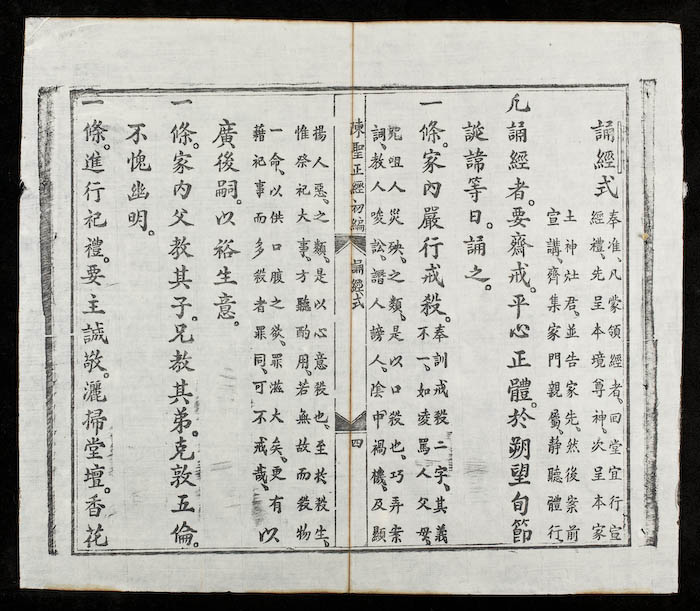 誦經式
奉准、凡蒙領經者、回堂宜行宣
經禮、先呈本境尊神、次呈本家
土神灶君、並告家先、然後案前
宣講、齊集家門親屬、静聽體行、
凡誦經者。要齋戒。平心正體。於朔望旬節
誕諱等日。誦之。
一條。家內嚴行戒殺。
奉訓戒殺二字、其義
不一、如凌罵人父母、
咒咀人災殃、之類、是以口殺也、巧弄案
詞、教人唆訟、譖人謗人、陰中禍機、及顯
陳聖正經初編 誦經式 四
揚人惡、之類、是以心意殺也、至於殺生、
惟祭祀大事、方聽酌用、若無故而殺物
一命、以供口腹之欲、罪滋大矣、更有
藉祀事而多殺者罪同、可不戒哉、
以
廣後嗣。以裕生意。
一條。家內父教其子。兄教其弟。克敦五倫。
不愧幽明。
一條。進行祀禮。要主誠敬。灑掃堂壇。香花